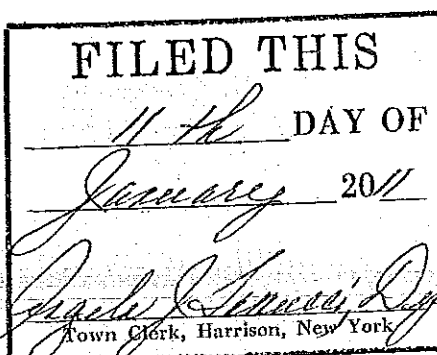 FILED THIS
11 th DAY OF
January 2011
J
Town Clerk, Harrison, New York